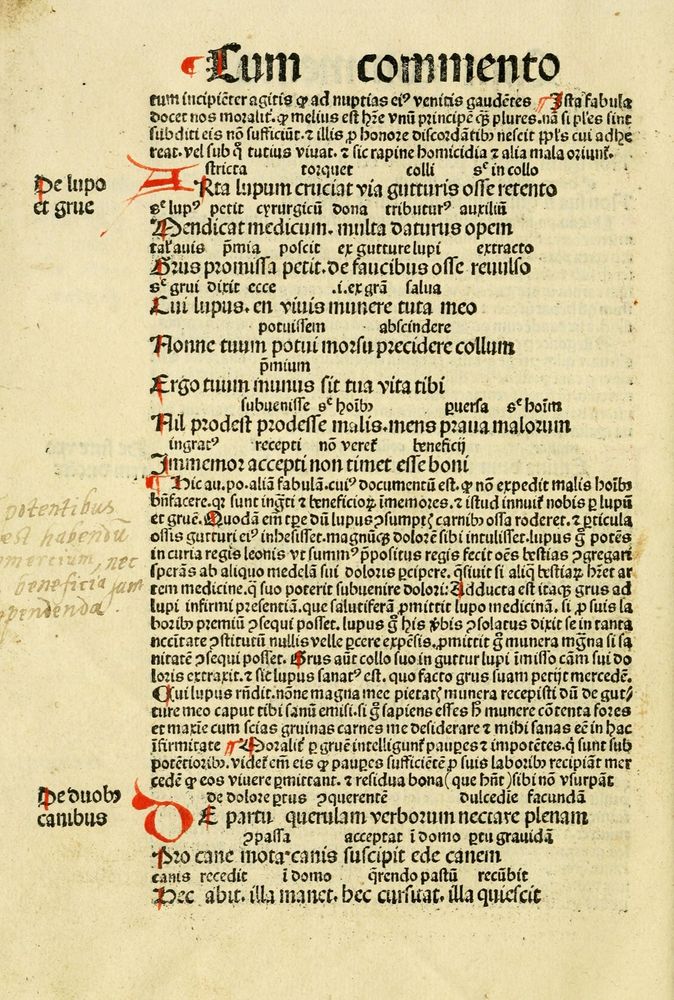 Cum commento
tum incipiēter agitis ꝙ ad nuptias eiꝰ venitis gaudētes ¶ Ista fabula
docet nos moralitꝭ. ꝙ melius est hr̄e vnū principē qꝫ plures. nā si pl̄es sint
subditi eis nō sufficiūt. ⁊ illis ꝓ honore discordātibꝫ nescit ppl̄s cui adhe
reat. vel sub q̇ tutius viuat. ⁊ sic rapine homicidia ⁊ alia mala oriunt᷑.
astricta torquet colli sᶜ in collo
De lupo
et grue
ARta lupum cruciat via gutturis osse retento
sᶜ lupꝰ petit cyrurgicū dona tributurꝰ auxiliū
Mendicat medicum. multa daturus opem
talꝭ auis p̄mia poscit ex gutture lupi extracto
Grus promissa petit. de faucibus osse reuulso
sᶜ grui dixit ecce .i. ex grā salua
Cui lupus. en viuis munere tuta meo
potuissem abscindere
Nonne tuum potui morsu precidere collum
p̄mium
Ergo tuum munus sit tua vita tibi
subuenisse sᶜ hoībꝫ ꝑuersa sᶜ hoīm
Nil prodest prodesse malis. mens praua malorum
ingratꝰ recepti nō veret᷑ beneficij
Immemor accepti non timet esse boni
¶ Hic au. po. aliā fabulā. cuiꝰ documentū est. ꝙ nō expedit malis hoībꝫ
bn̄facere. qꝛ sunt ingr̄ti ⁊ beneficioꝝ īmemores. ⁊ istud innuit᷑ nobis ꝑ lupū
et gruē. Quodā em̄ tꝑe dū lupus ꝯsumptꝭ carnibꝫ ossa roderet. ⁊ ꝑticula
ossis gutturi eiꝰ inhesisset. magnūqꝫ dolorē sibi intulisset. lupus gͦ potēs
in curia regis leonis vt summꝰ ꝓpositus regis fecit oēs bestias ꝯgregari
sperās ab aliquo medelā sui doloris ꝑcipere. q̄siuit si aliq̄ bestiaꝝ hr̄et ar
tem medicine. q̄ suo poterit subuenire dolori: Adducta est itaqꝫ grus ad
lupi infirmi presentiā. que salutiferā ꝓmittit lupo medicinā. si ꝓ suis la
boribꝫ premiū ꝯsequi posset. lupus gͦ his ꝟbis ꝯsolatus dixit se in tanta
nc̄citate ꝯstitutū nullis velle ꝑcere expēsis. ꝓmittit gͦ munera magna si sa
nitatē ꝯsequi posset. Grus aūt collo suo in guttur lupi īmisso cām sui do
loris extraxit. ⁊ sic lupus sanatꝰ est. quo facto grus suam petijt mercedē.
Cui lupus rn̄dit. nōne magna mee pietatꝭ munera recepisti dū de gut
ture meo caput tibi sanū emisi. si gͦ sapiens esses hͦ munere cōtenta fores
et maxīe cum scias gruinas carnes me desiderare ⁊ mihi sanas eē in hac
īfirmitate ¶ Moralitꝭ ꝑ gruē intelligunt᷑ pauꝑes ⁊ impotētes. q̇ sunt sub
potētioribꝫ. videt᷑ em̄ eis ꝙ pauꝑes sufficiētē ꝓ suis laboribꝫ recipiāt mer
cedē ꝙ eos viuere ꝑmittant. ⁊ residua bona (que hn̄t) sibi nō vsurpāt
potentibus
est habendū
mercium, nec
beneficia jam
pendenda.
de dolore ꝑtus ꝯquerentē dulcedīe facundā
De duobꝫ
canibus
DE partu querulam verborum nectare plenam
ꝯpassa acceptat ī domo ꝑtu grauidā
Pro cane mota canis suscipit ede canem
canis recedit ī domo q̄rendo pastū recūbit
Hec abit. illa manet. hec cursitat. illa quiescit